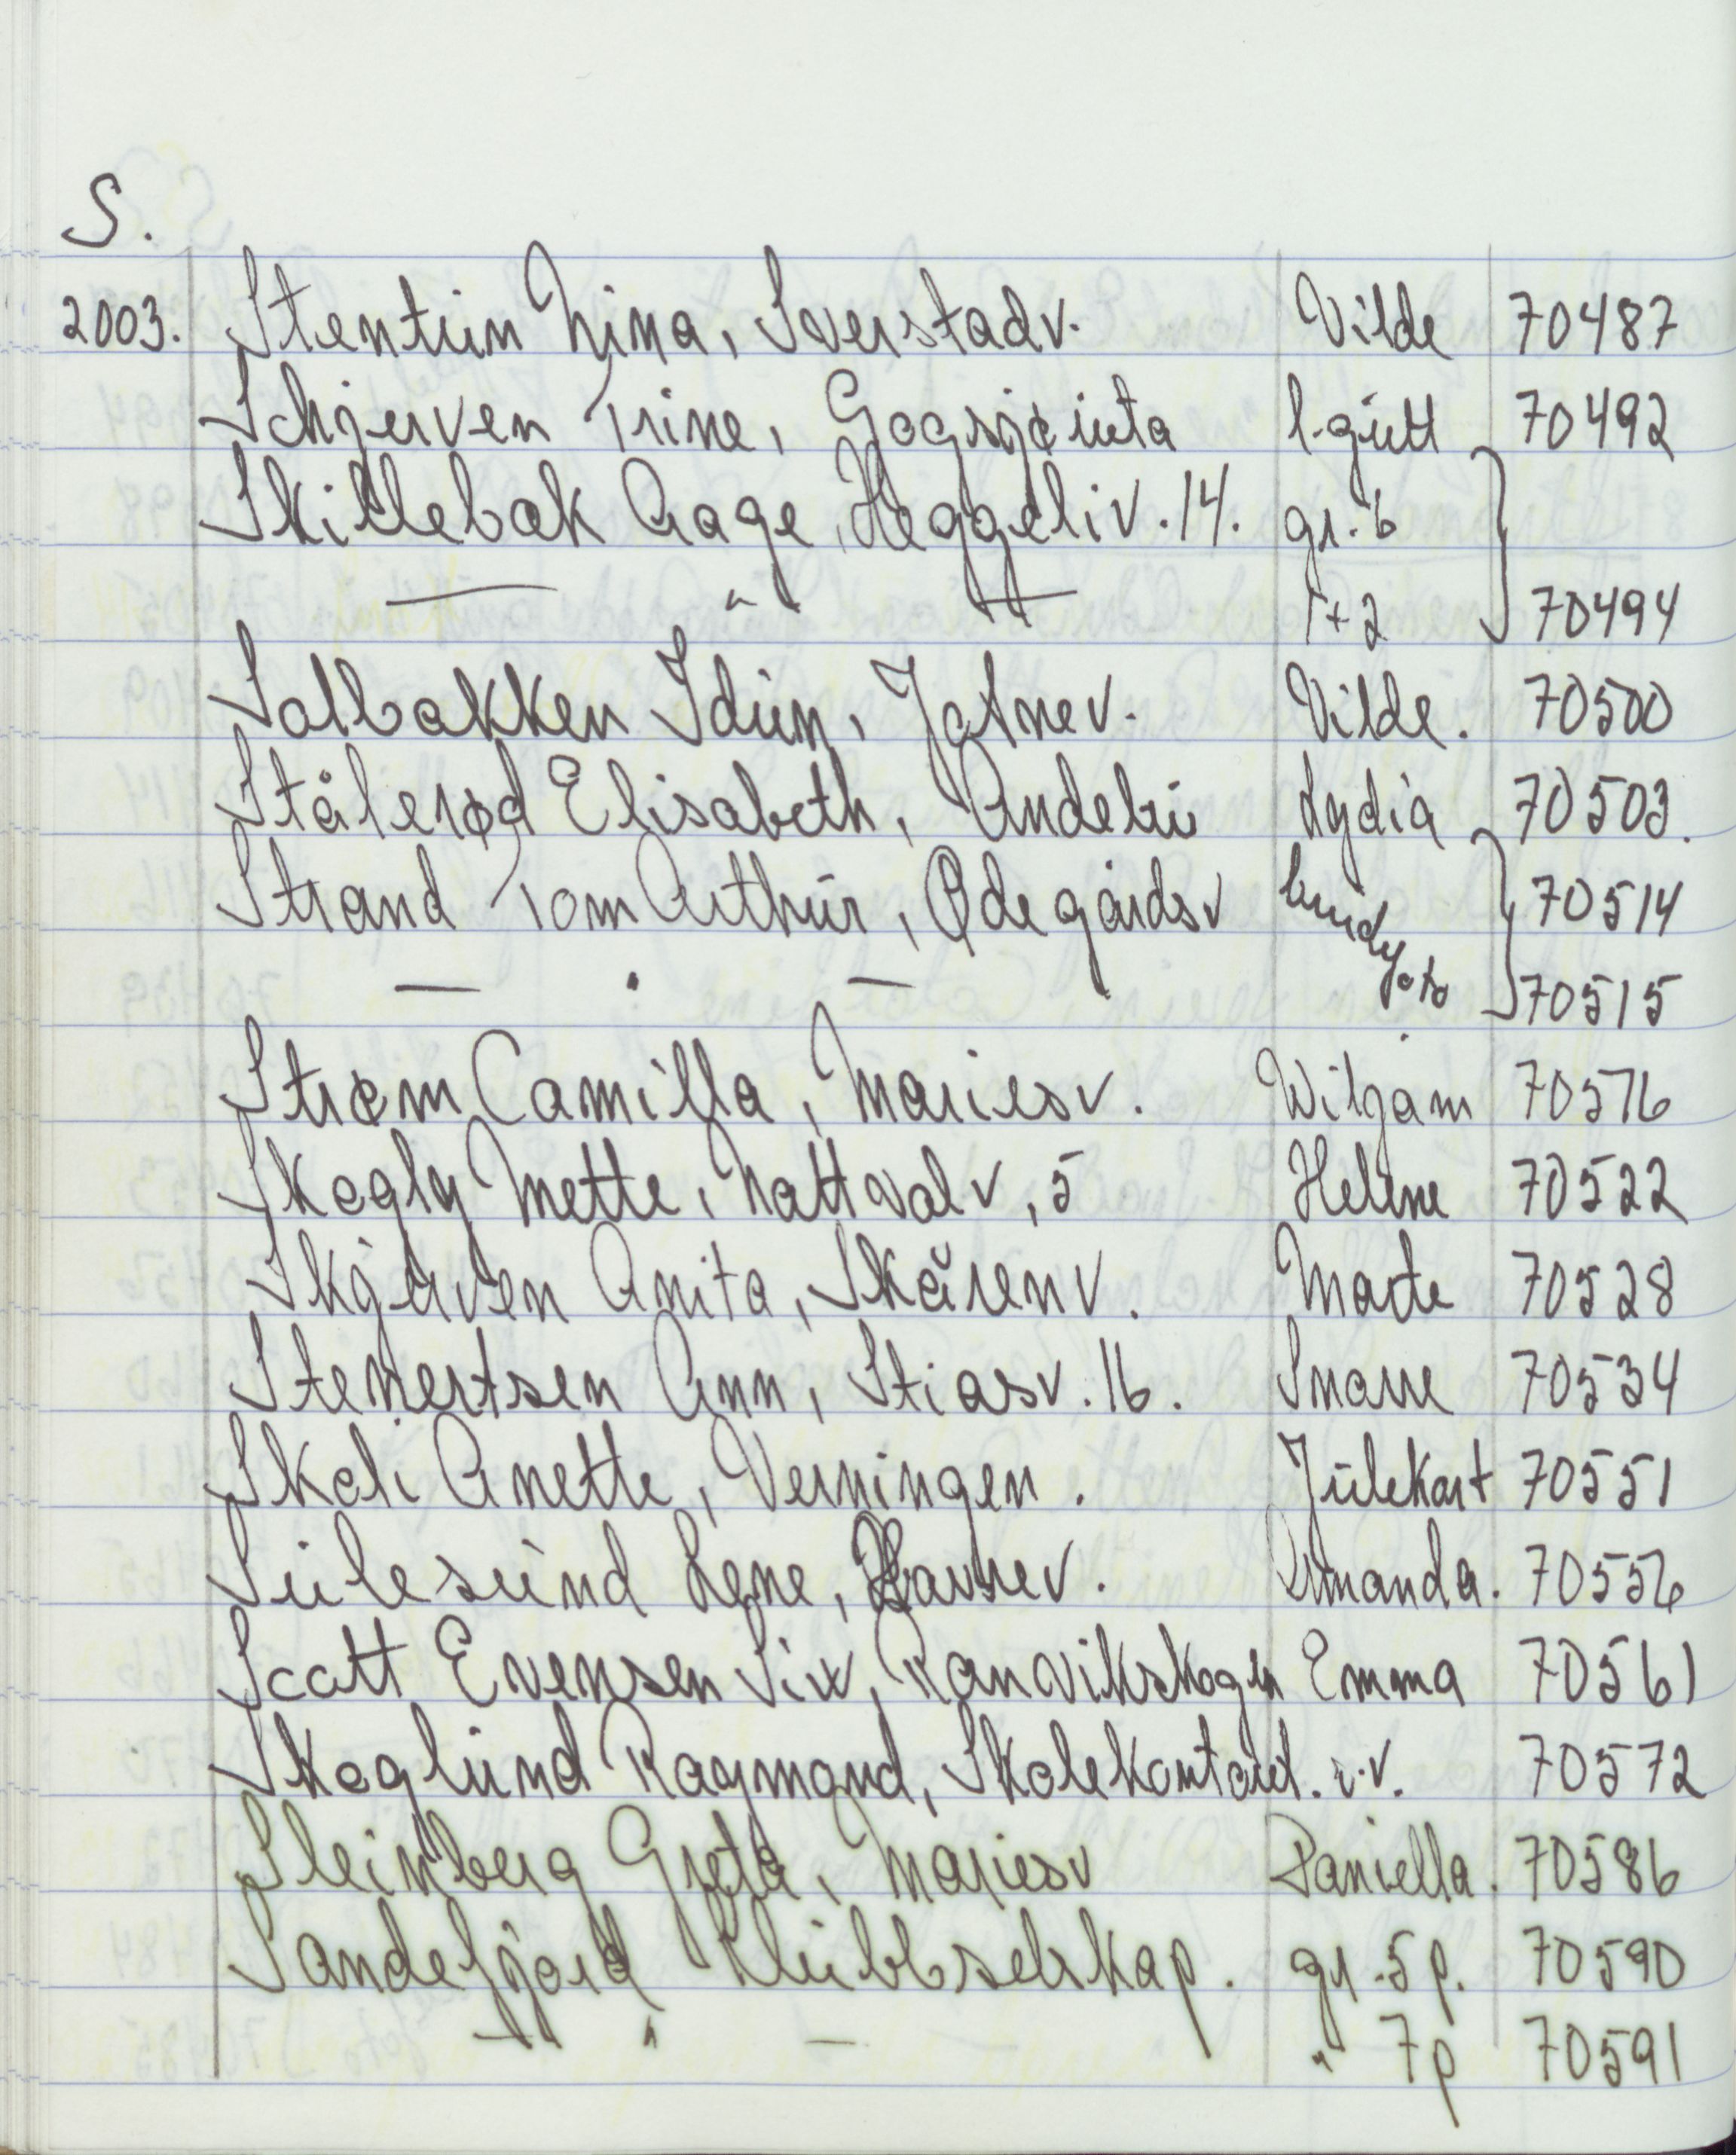 S.
2003. Stentun Nina, Sverstadv. Vilde 70487
Schjerven Trine, Gogsjø 1.gutt 70492
Skillebæk Aage, Heggeliv. 14. gr. 6
— " — 1+2 70494
Solbakken Idun, Jotnev. Vilde. 70500
Stålerød Elisabeth, Andebu Lydia 70503.
Strand Tom Arthur, Ødegårdsv brudefoto 70514
— " — 70515
Strøm Camilla, Mariesv. Wiljam 70516
Skogly Mette, Nattvalv, 5 Helene 70522
Skjerven Anita, Skårenv. Marte 70528
Stenertsen Ann, Stiasv. 16. Snorre 70534
Skoli Anette, Verningen. Julekort 70551
Sulesund Lene, Amanda. 70556
Scott Evensen Siw, Ranvikskogen Emma 70561
Skoglund Raymond, Skolekontoret. r.v. 70572
Steinberg Greta, Mariesv Daniella. 70586
Sandefjord Klubbselskap. gr. 5 p. 70590
— " — " 7p 70591